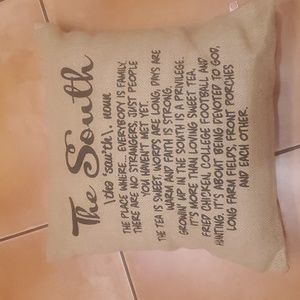 The South
\ the 'sau̇th \ , noun
THE PLACE WHERE... EVERYBODY IS FAMILY.
THERE ARE NO STRANGERS, JUST PEOPLE
YOU HAVEN'T MET YET.
THE TEA IS SWEET, WORDS ARE LONG, DAYS ARE
WARM AND FAITH IS STRONG.
GROWIN' UP IN THE SOUTH IS A PRIVILEGE.
IT'S MORE THAN LOVING SWEET TEA,
FRIED CHICKEN, COLLEGE FOOTBALL AND
HUNTING. IT'S ABOUT BEING DEVOTED TO GOD,
LONG FARM FIELDS, FRONT PORCHES
AND EACH OTHER.